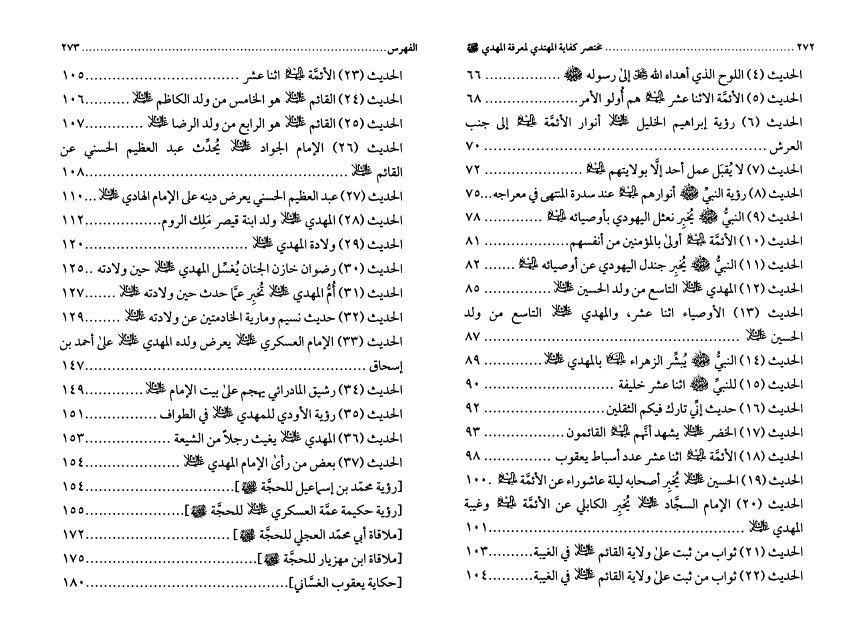 ٢٧٢ ........ مختصر كفاية المهتدي لمعرفة المهدي ﷺ
الحديث (٤) اللوح الذي أهداه الله ﷻ إلى رسوله ﷺ ........ ٦٦
الحديث (٥) الأئمَّة الاثنا عشر عليهم السلام هم أُولو الأمر........ ٦٨
الحديث (٦) رؤية إبراهيم الخليل عليه السلام أنوار الأئمَّة عليهم السلام إلى جنب
العرش ........ ٧٠
الحديث (٧) لا يُقبَل عمل أحد إلَّا بولايتهم عليهم السلام ........ ٧٢
الحديث (٨) رؤية النبيِّ ﷺ أنوارهم عليهم السلام عند سدرة المنتهى في معراجه...٧٥
الحديث (٩) النبيُّ ﷺ يُخبِر نعثل اليهودي بأوصيائه عليهم السلام ........ ٧٨
الحديث (١٠) الأئمَّة عليهم السلام أولىٰ بالمؤمنين من أنفسهم........ ٨١
الحديث (١١) النبيُّ ﷺ يُخبِر جندل اليهودي عن أوصيائه عليهم السلام ....... ٨٢
الحديث (١٢) المهدي عليه السلام التاسع من ولد الحسين عليه السلام........ ٨٥
الحديث (١٣) الأوصياء اثنا عشر، والمهدي عليه السلام التاسع من ولد
الحسين عليه السلام ........ ٨٧
الحديث (١٤) النبيُّ ﷺ يُبشِّر الزهراء عليها السلام بالمهدي عليه السلام........ ٨٩
الحديث (١٥) للنبيِّ ﷺ اثنا عشر خليفة ........ ٩٠
الحديث (١٦) حديث إنِّي تارك فيكم الثقلين........ ٩٢
الحديث (١٧) الخضر عليه السلام يشهد أنَّهم عليهم السلام القائمون........ ٩٣
الحديث (١٨) الأئمَّة عليهم السلام اثنا عشر عدد أسباط يعقوب ........ ٩٨
الحديث (١٩) الحسين عليه السلام يُخبِر أصحابه ليلة عاشوراء عن الأئمَّة عليهم السلام .١٠٠
الحديث (٢٠) الإمام السجَّاد عليه السلام يُخبِر الكابلي عن الأئمَّة عليهم السلام وغيبة
المهدي عليه السلام ........ ١٠١
الحديث (٢١) ثواب من ثبت علىٰ ولاية القائم عليه السلام في الغيبة........ ١٠٣
الحديث (٢٢) ثواب من ثبت علىٰ ولاية القائم عليه السلام في الغيبة........ ١٠٤
الفهرس ........ ٢٧٣
الحديث (٢٣) الأئمَّة عليهم السلام اثنا عشر ........ ١٠٥
الحديث (٢٤) القائم عليه السلام هو الخامس من ولد الكاظم عليه السلام ........ ١٠٦
الحديث (٢٥) القائم عليه السلام هو الرابع من ولد الرضا عليه السلام ........ ١٠٧
الحديث (٢٦) الإمام الجواد عليه السلام يُحدِّث عبد العظيم الحسني عن
القائم عليه السلام ........ ١٠٨
الحديث (٢٧) عبد العظيم الحسني يعرض دينه على الإمام الهادي عليه السلام...١١٠
الحديث (٢٨) المهدي عليه السلام ولد ابنة قيصر مَلِك الروم........ ١١٢
الحديث (٢٩) ولادة المهدي عليه السلام ........ ١٢٠
الحديث (٣٠) رضوان خازن الجنان يُغسِّل المهدي عليه السلام حين ولادته ..١٢٥
الحديث (٣١) أُمُّ المهدي عليه السلام تُخبِر عمَّا حدث حين ولادته عليه السلام .......١٢٧
الحديث (٣٢) حديث نسيم ومارية الخادمتين عن ولادته عليه السلام ........ ١٢٩
الحديث (٣٣) الإمام العسكري عليه السلام يعرض ولده المهدي عليه السلام علىٰ أحمد بن
إسحاق ........ ١٤٧
الحديث (٣٤) رشيق المادرائي يهجم علىٰ بيت الإمام عليه السلام........ ١٤٩
الحديث (٣٥) رؤية الأودي للمهدي عليه السلام في الطواف ........ ١٥١
الحديث (٣٦) المهدي عليه السلام يغيث رجلاً من الشيعة ........ ١٥٣
الحديث (٣٧) بعض من رأىٰ الإمام المهدي عليه السلام ........ ١٥٤
[رؤية محمّد بن إسماعيل للحجَّة]........ ١٥٤
[رؤية حكيمة عمَّة العسكري عليه السلام للحجَّة]........ ١٥٥
[ملاقاة أبي محمّد العجلي للحجَّة] ........ ١٧٢
[ملاقاة ابن مهزيار للحجَّة]........ ١٧٥
[حكاية يعقوب الغسَّاني]........ ١٨٠